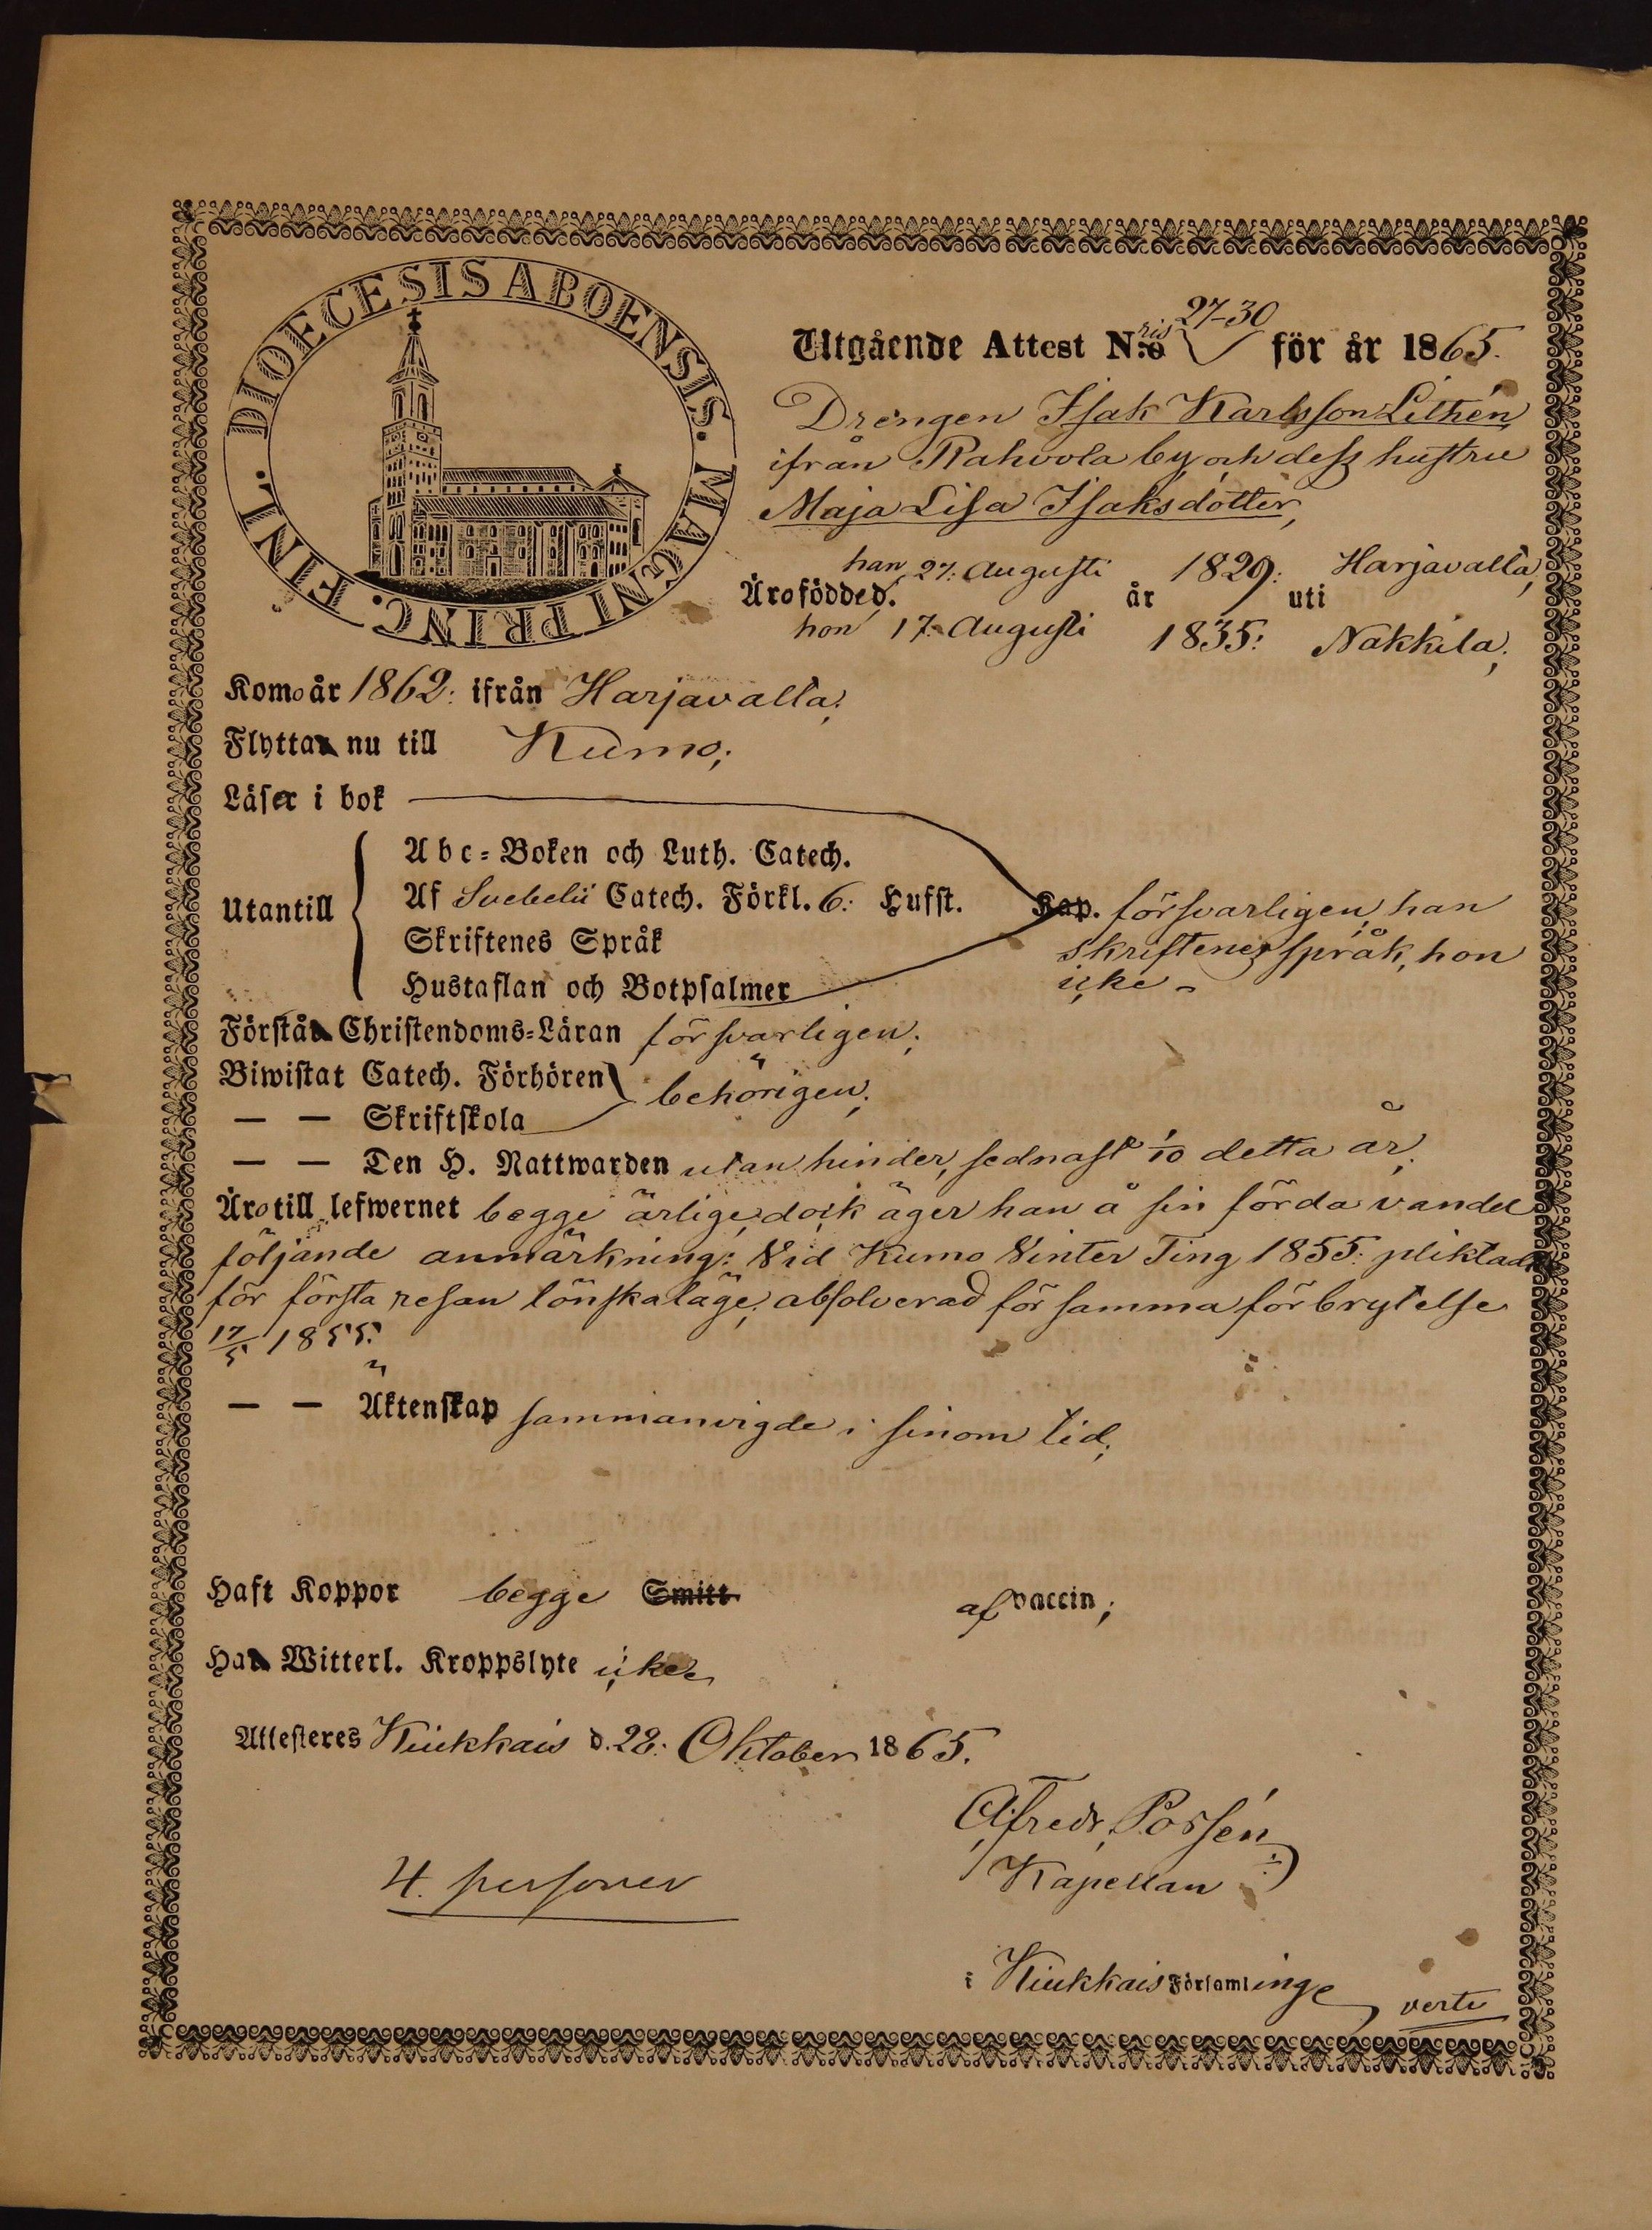 DIOECESIS ABOENSIS. MAGNI PRINC. FINL.
Utgående Attest N:ris 27-30 för år 1865.
Drengen Isak Karlsson Lithén
ifrån Rahvola by och dess hustru
Maja Lisa Isaksdotter,
han 27: Augusti 1829: Harjavalta,
Äro födde d. år uti
hon 17: Augusti 1835: Nakkila;
Komo år 1862: ifrån Harjavalta;
Flytta nu till Kumo;
Läser i bok
Abc-Boken och Luth. Catech.
Utantill Af Svebelii Catech. Förkl. 6: Hufst. Kap. försvarligen, han
Skriftenes Språk skriftenes språk, hon
Hustaflan och Botpsalmer icke
Förstå Christendoms-Läran försvarligen;
Biwistat Catech. Förhören behörigen;
— — Skriftskola
— — Den H. Nattwarden utan hinder, sednast 1/10 detta år;
Äro till lefwernet begge ärlige, dock äger han å sin förda vandel
följande anmärkning: Vid Kumo Vinter Ting 1855: pliktad
för första resan lönskaläge; absolverad för samma förbrytelse
17/5 1855:
— — Äktenskap sammanvigde i sinom tid;
Haft Koppor begge Smitt af vaccin;
Ha Witterl. Kroppslyte icke
Attesteres Kiukkais d. 28: Oktober 1865.
Alfredr Possén
Kapellan
4. personer
i Kiukkais Församlinge
verte